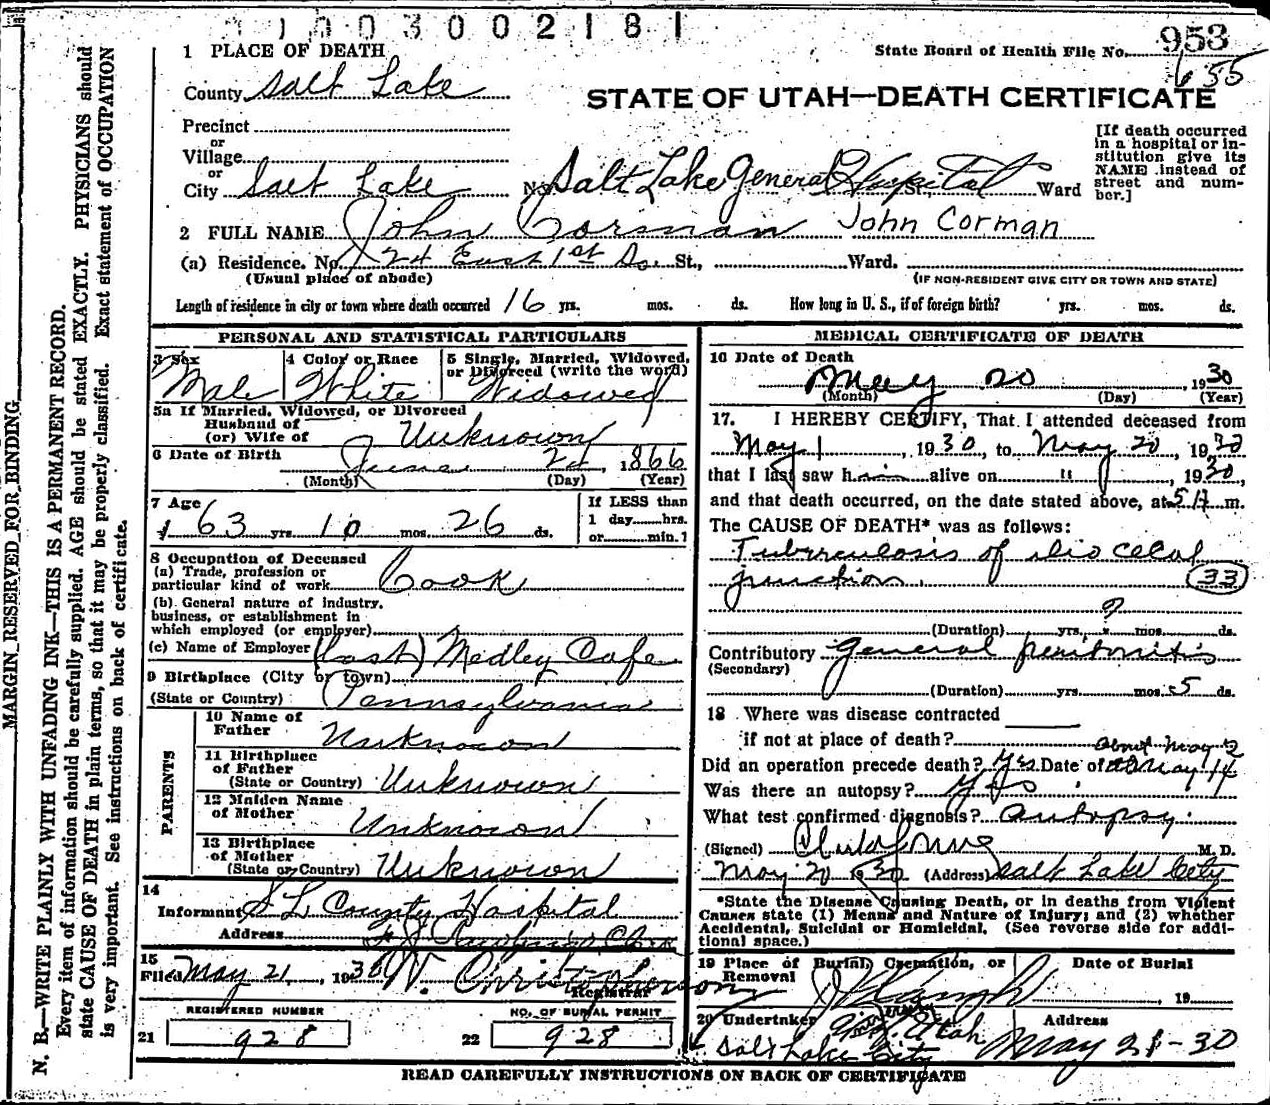 1003002181
1 PLACE OF DEATH
State Board of Health File No. 953
655
County Salt Lake
STATE OF UTAH—DEATH CERTIFICATE
Precinct
or
Village
or
City Salt Lake No. Salt Lake General Hospital St. Ward
[If death occurred
in a hospital or in-
stitution give its
NAME instead of
street and num-
ber.]
2 FULL NAME John Corman John Corman
(a) Residence. No. 24 East 1st So. St., Ward.
(Usual place of abode) (IF NON-RESIDENT GIVE CITY OR TOWN AND STATE)
Length of residence in city or town where death occurred 16 yrs. mos. ds. How long in U. S., if of foreign birth? yrs. mos. ds.
PERSONAL AND STATISTICAL PARTICULARS
3 Sex 4 Color or Race 5 Single, Married, Widowed,
or Divorced (write the word)
Male White Widowed
5a If Married, Widowed, or Divorced
Husband of
(or) Wife of Unknown
6 Date of Birth June 24, 1866
(Month) (Day) (Year)
7 Age If LESS than
63 yrs. 10 mos. 26 ds. 1 day hrs.
or min. ?
8 Occupation of Deceased
(a) Trade, profession or
particular kind of work Cook
(b) General nature of industry,
business, or establishment in
which employed (or employer)
(c) Name of Employer (last) Medley Cafe
9 Birthplace (City or town)
(State or Country) Pennsylvania
PARENTS
10 Name of
Father Unknown
11 Birthplace
of Father
(State or Country) Unknown
12 Maiden Name
of Mother Unknown
13 Birthplace
of Mother
(State or Country) Unknown
14
Informant S L County Hospital
Address
15
Filed May 21, 1930 W. Christopherson
Registrar
REGISTERED NUMBER NO. OF BURIAL PERMIT
21 928 22 928
MEDICAL CERTIFICATE OF DEATH
16 Date of Death
May 20, 1930
(Month) (Day) (Year)
17. I HEREBY CERTIFY, That I attended deceased from
May 1, 1930, to May 20, 1930
that I last saw him alive on " , 1930,
and that death occurred, on the date stated above, at m.
The CAUSE OF DEATH* was as follows:
Tuberculosis of ilio cecal
junction. 33
?
(Duration) yrs. mos. ds.
Contributory General peritonitis
(Secondary)
(Duration) yrs. mos. 5 ds.
18 Where was disease contracted
if not at place of death?
about May 2
Did an operation precede death? Yes Date of May 14
Was there an autopsy? Yes
What test confirmed diagnosis? Autopsy.
(Signed) M. D.
May 20 1930 (Address) Salt Lake City
*State the Disease Causing Death, or in deaths from Violent
Causes state (1) Means and Nature of Injury; and (2) whether
Accidental, Suicidal or Homicidal. (See reverse side for addi-
tional space.)
19 Place of Burial, Cremation, or Date of Burial
Removal , 19
20 Undertaker Utah Address
Salt Lake City May 21-30
READ CAREFULLY INSTRUCTIONS ON BACK OF CERTIFICATE
MARGIN RESERVED FOR BINDING
N. B.—WRITE PLAINLY WITH UNFADING INK—THIS IS A PERMANENT RECORD.
Every item of information should be carefully supplied. AGE should be stated EXACTLY. PHYSICIANS should
state CAUSE OF DEATH in plain terms, so that it may be properly classified. Exact statement of OCCUPATION
is very important. See instructions on back of certificate.